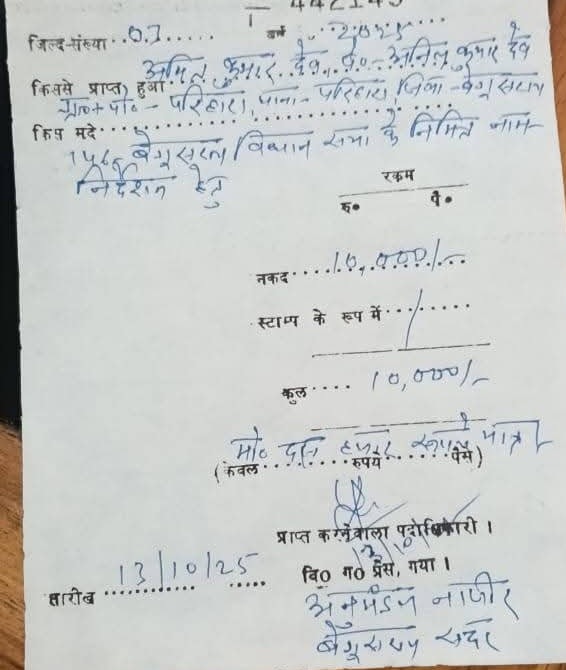 T 442145
जिल्द-संख्या..03 वर्ष..2025
किससे प्राप्त हुआ अमित कुमार देव, पे०- अनिल कुमार देव
ग्रा०+पो०- परिहारा, थाना- परिहारा, जिला- बेगूसराय
किस मदे
146, बेगूसराय विधान सभा के निमित नाम-
निर्देशन हेतु
रकम
रु० पै०
नकद....10,000/-
स्टाम्प के रूप में....../
कुल.... 10,000/-
मो० दस हजार रूपये मात्र
(केवल........रुपये......पैसे)
प्राप्त करनेवाला पदाधिकारी ।
तारीख 13/10/25 वि0 ग0 प्रेस, गया ।
अनुमंडल नाजीर
बेगूसराय सदर